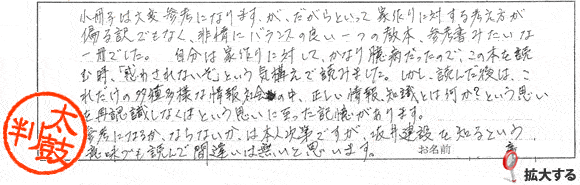 小冊子は大変参考になります。が、だからといって家作りに対する考え方が
偏る訳でもなく、非常にバランスの良い一つの教本、参考書みたいな
一冊でした。 自分は家作りに対して、かなり臆病だったので、この本を読
む時、「惑わされないぞ」という気構えで読みました。しかし、読んだ後は、こ
れだけの多種多様な情報社会の中、正しい情報、知識とは何か?という思い
を再認識しなくはという思いに至った記憶があります。
参考になるか、ならないか、は本人次第ですが、坂井建設を知るという
意味でも読んで間違いは無いと思います。
お名前
太鼓
判
拡大する